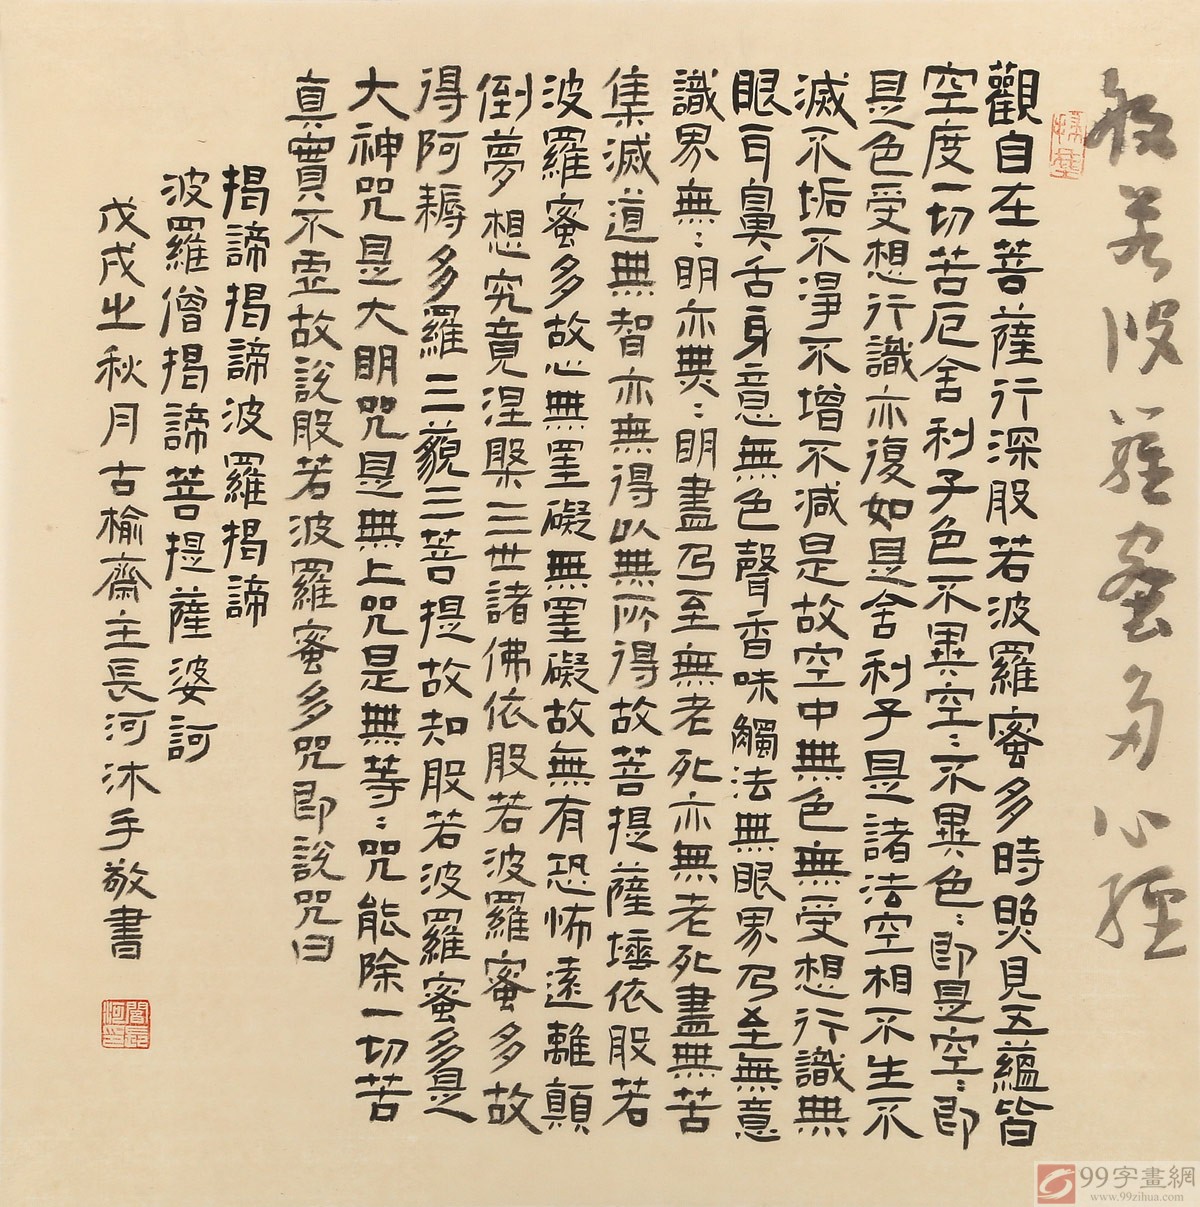 般若波羅蜜多心經
觀自在菩薩行深般若波羅蜜多時照見五蘊皆
空度一切苦厄舍利子色不異空:不異色:即是空:即
是色受想行識亦復如是舍利子是諸法空相不生不
滅不垢不淨不增不減是故空中無色無受想行識無
眼耳鼻舌身意無色聲香味觸法無眼界乃至無意
識界無:明亦無:明盡乃至無老死亦無老死盡無苦
集滅道無智亦無得以無所得故菩提薩埵依般若
波羅蜜多故心無罣礙無罣礙故無有恐怖遠離顛
倒夢想究竟涅槃三世諸佛依般若波羅蜜多故
得阿耨多羅三藐三菩提故知般若波羅蜜多是
大神咒是大明咒是無上咒是無等:咒能除一切苦
真實不虛故說般若波羅蜜多咒即說咒曰
揭諦揭諦波羅揭諦
波羅僧揭諦菩提薩婆訶
戊戌之秋月古榆齋主長河沐手敬書
99字畫網
www.99zihua.com